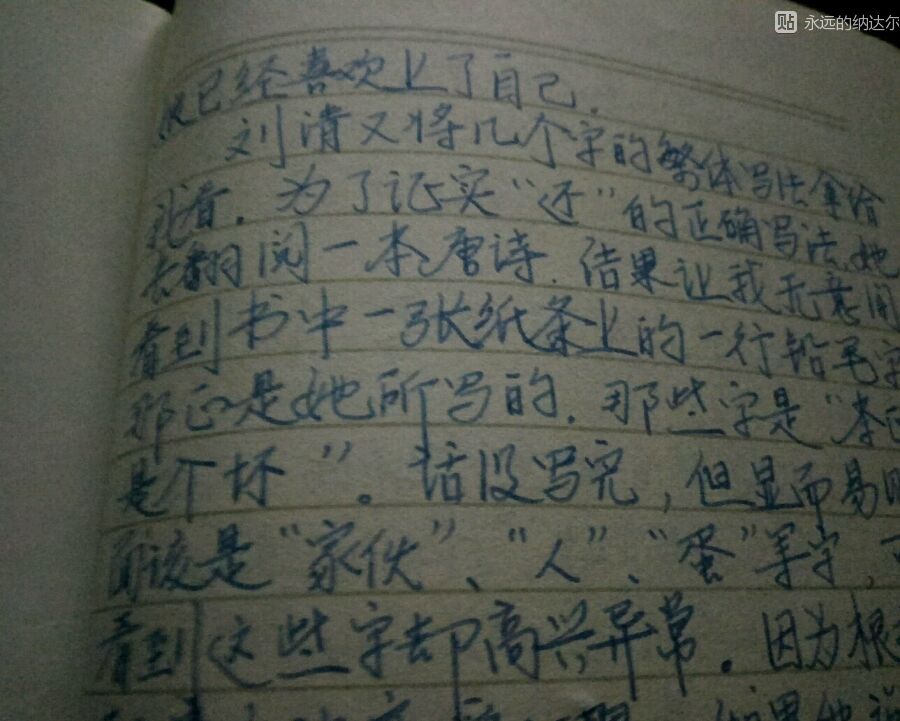 永远的纳达尔
已经喜欢上了自己.
刘清又将几个字的繁体写法拿给
我看.为了证实“还”的正确写法,她
去翻阅一本唐诗.结果让我无意间
看到书中一张纸条上的一行铅笔字
那正是她所写的.那些字是“李
是个坏”。话没写完,但显而易
面该是“家伙”、“人”、“蛋”等字,
看到这些字却高兴异常。因为根
如果他说